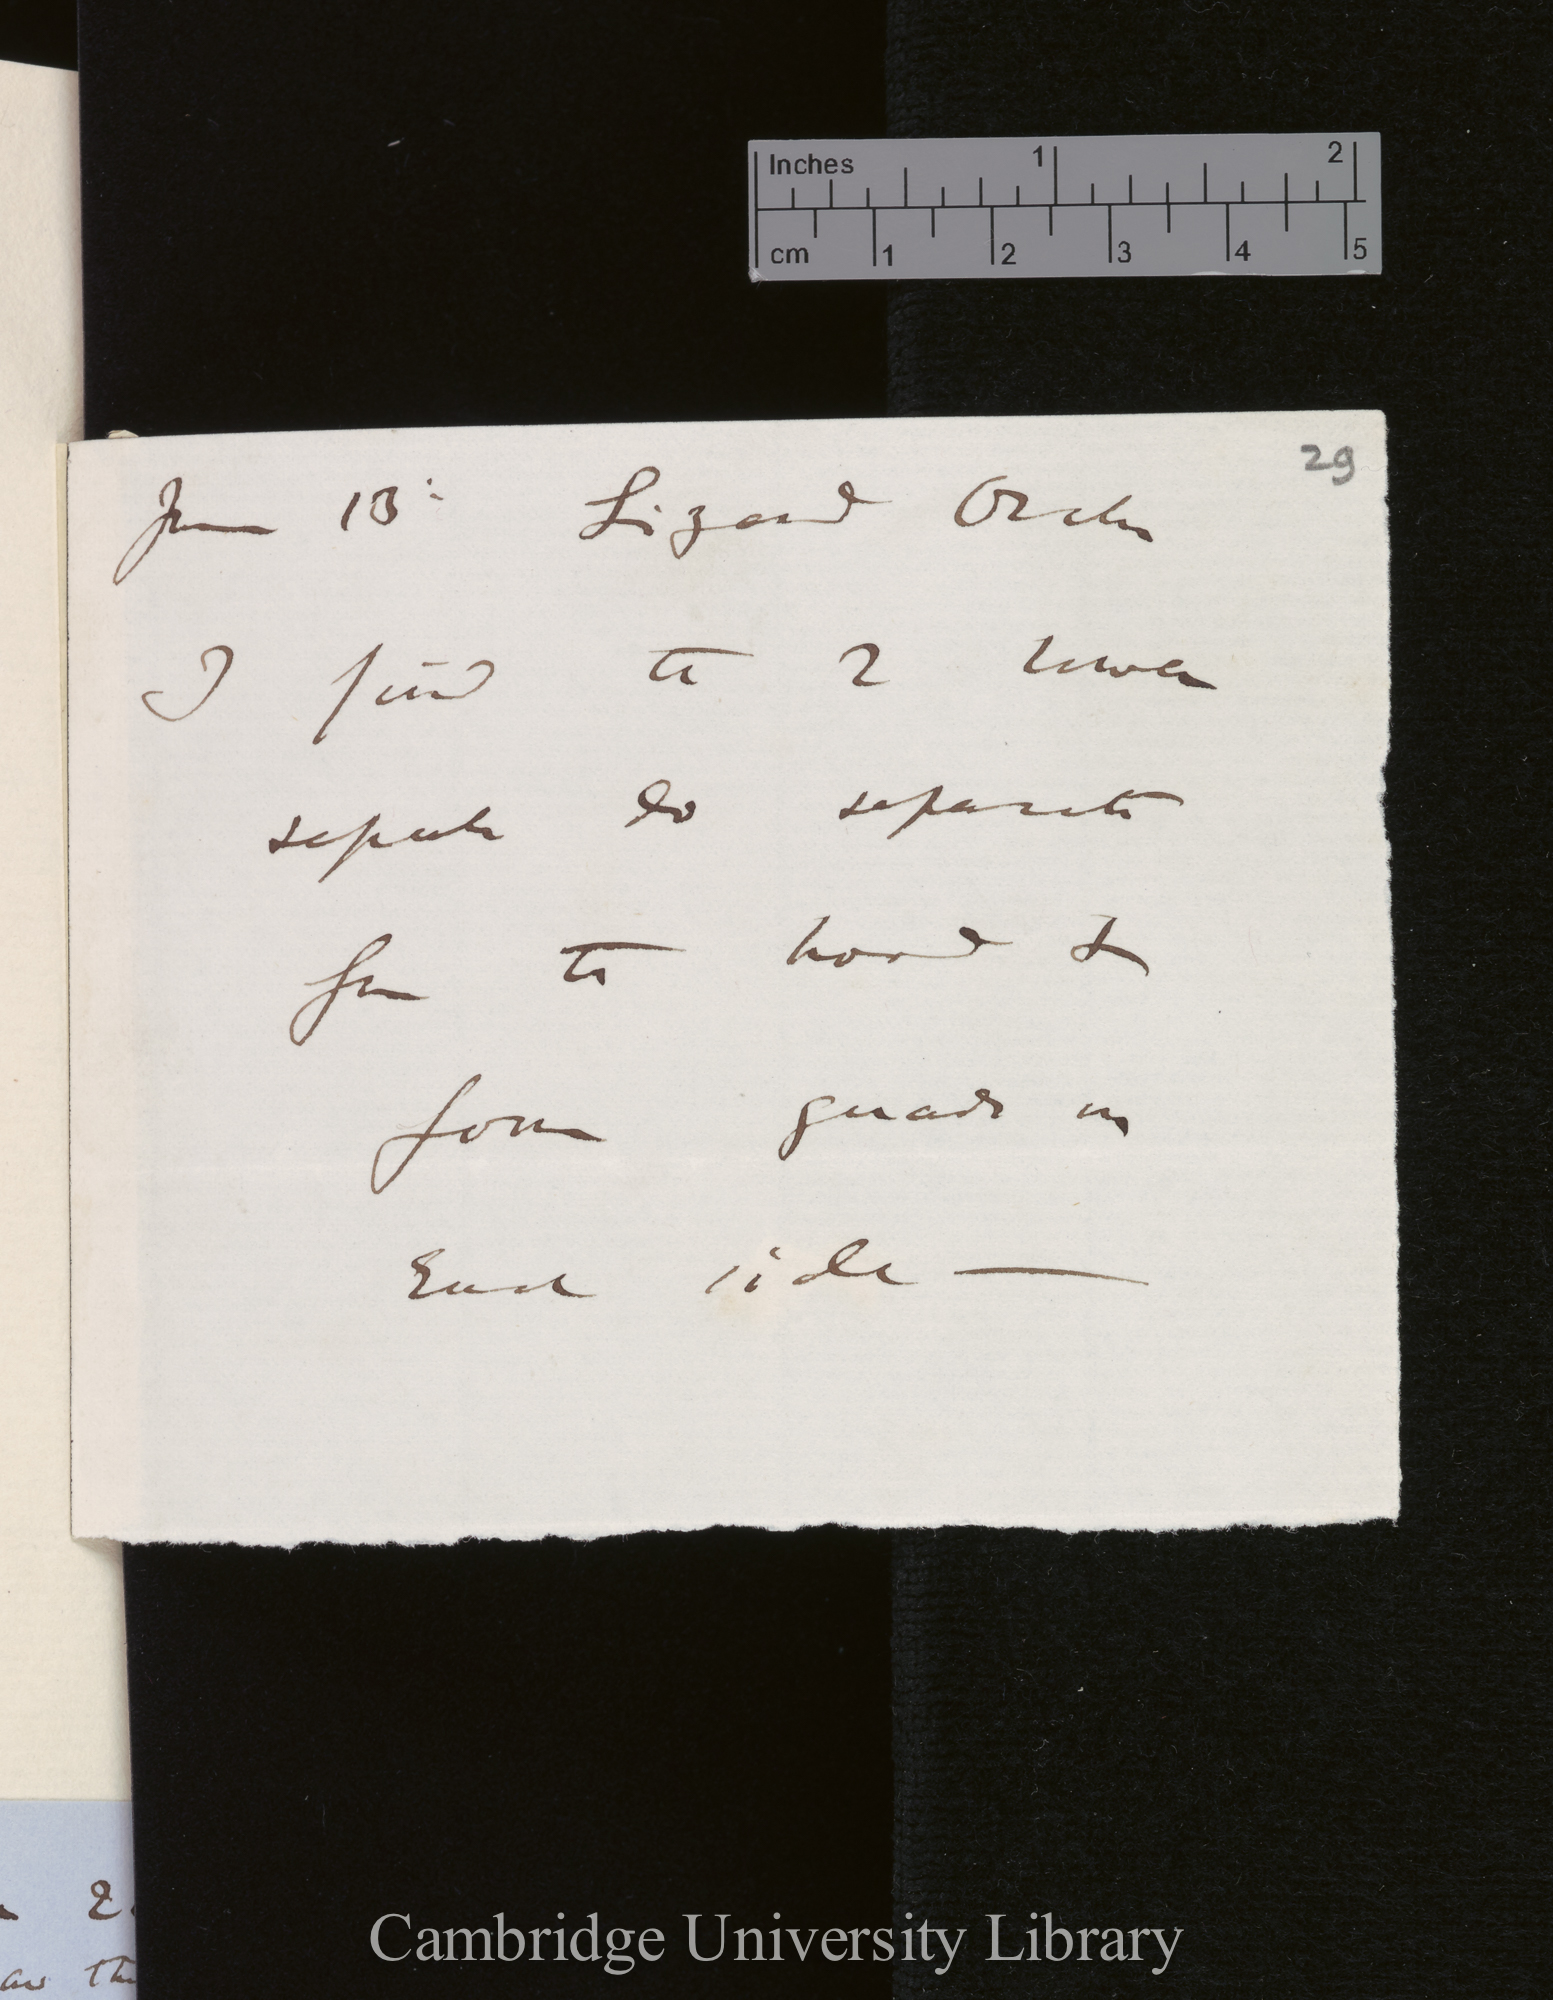 Inches 1 2
cm 1 2 3 4 5
29
June 13: Lizard Orchis
I find the 2 lower
sepals do separate
from the hood &
form guards on
each side —
2.
Cambridge University Library